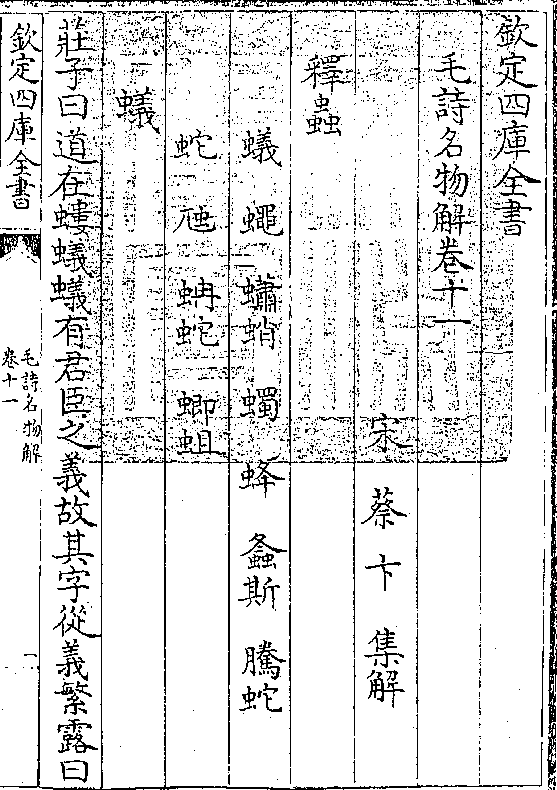 欽定四庫全書
毛詩名物解卷十一
宋 蔡卞 集解
釋蟲
蟻 蠅 蠨蛸 蠋 蜂 螽斯 騰蛇
蛇 虺 蚺蛇 蝍蛆
蟻
莊子曰道在螻蟻蟻有君臣之義故其字從義繁露曰
欽定四庫全書
毛詩名物解
卷十一
一